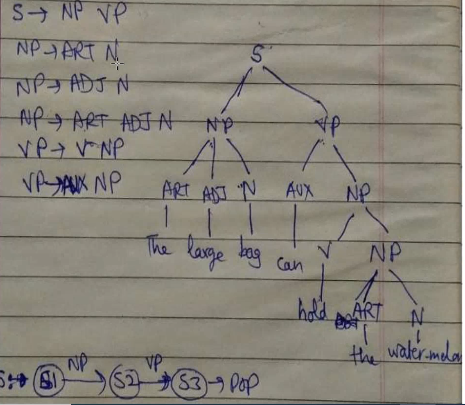 S → NP VP
NP → ART N
NP → ADJ N
NP → ART ADJ N
VP → V NP
VP → AUX NP
S
NP VP
ART ADJ N AUX NP
The large bag can V NP
hold ART N
the water-melon
S: S1 NP → S2 VP → S3 → POP